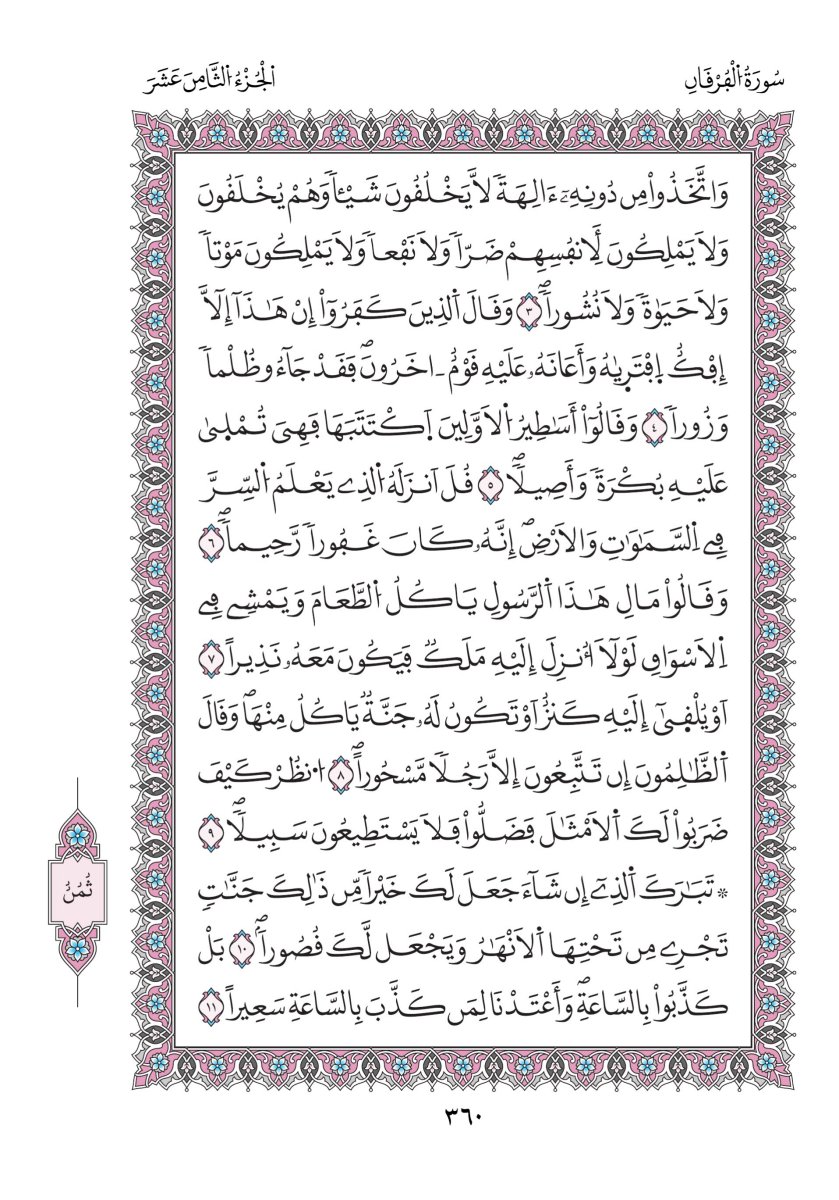 سُورَةُ اُ۬لْفُرْقَانِ
اَ۬لْجُزْءُ اُ۬لثَّامِنَ عَشَرَ
وَاتَّخَذُواْ مِن دُونِهِۦٓ ءَالِهَةٗ لَّا يَخْلُقُونَ شَيْـٔاٗ وَهُمْ يُخْلَقُونَ
وَلَا يَمْلِكُونَ لِأَنفُسِهِمْ ضَرّاٗ وَلَا نَفْعاٗ وَلَا يَمْلِكُونَ مَوْتاٗ
وَلَا حَيَوٰةٗ وَلَا نُشُوراٗۖ ٣ وَقَالَ اَ۬لذِينَ كَفَرُوٓاْ إِنْ هَٰذَآ إِلَّآ
إِفْكٌ اِ۪فْتَرِيٰهُ وَأَعَانَهُۥ عَلَيْهِ قَوْمٌ ـ اخَرُونَۖ فَقَدْ جَآءُو ظُلْماٗ
وَزُوراٗۖ ٤ وَقَالُوٓاْ أَسَٰطِيرُ اُ۬لَاوَّلِينَ اَ۪كْتَتَبَهَا فَهِيَ تُمْل۪يٰ
عَلَيْهِ بُكْرَةٗ وَأَصِيلاٗۖ ٥ قُلَ اَنزَلَهُ اُ۬لذِے يَعْلَمُ اُ۬لسِّرَّ
فِے اِ۬لسَّمَٰوَٰتِ وَالَارْضِۖ إِنَّهُۥ كَانَ غَفُوراٗ رَّحِيماٗۖ ٦
وَقَالُواْ مَالِ هَٰذَا اَ۬لرَّسُولِ يَاكُلُ اُ۬لطَّعَامَ وَيَمْشِے فِے
اِ۬لَاسْوَاقِ لَوْلَآ أُنزِلَ إِلَيْهِ مَلَكٞ فَيَكُونَ مَعَهُۥ نَذِيراً ٧
اَوْ يُلْق۪يٰٓ إِلَيْهِ كَنزٌ اَوْ تَكُونُ لَهُۥ جَنَّةٞ يَاكُلُ مِنْهَاۖ وَقَالَ
اَ۬لظَّٰلِمُونَ إِن تَتَّبِعُونَ إِلَّا رَجُلاٗ مَّسْحُوراًۖ ٨ اُ۟نظُرْ كَيْفَ
ضَرَبُواْ لَكَ اَ۬لَامْثَٰلَ فَضَلُّواْ فَلَا يَسْتَطِيعُونَ سَبِيلاٗۖ ٩
۞ تَبَٰرَكَ اَ۬لذِےٓ إِن شَآءَ جَعَلَ لَكَ خَيْراٗ مِّن ذَٰلِكَ جَنَّٰتٖ
تَجْرِے مِن تَحْتِهَا اَ۬لَانْهَٰرُ وَيَجْعَل لَّكَ قُصُوراٗۖ ١٠ بَلْ
كَذَّبُواْ بِالسَّاعَةِۖ وَأَعْتَدْنَا لِمَن كَذَّبَ بِالسَّاعَةِ سَعِيراً ١١
ثُمُنُ
٣٦٠